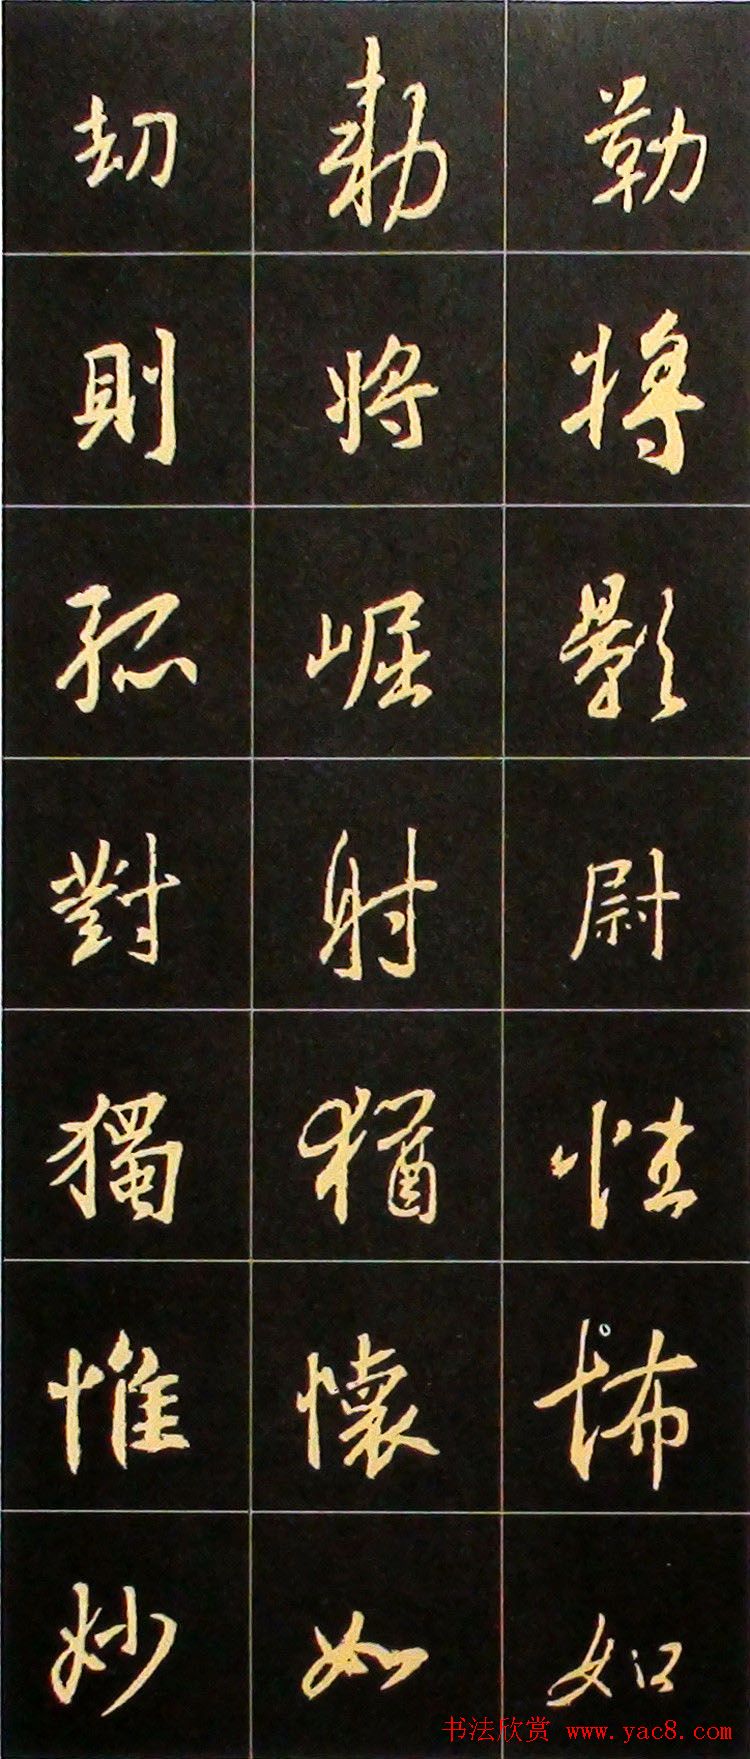 刼 勅 勒
則 將 將
孤 崛 影
對 射 尉
獨 猶 性
惟 懷 怖
妙 如 如
书法欣赏 www.yac8.com